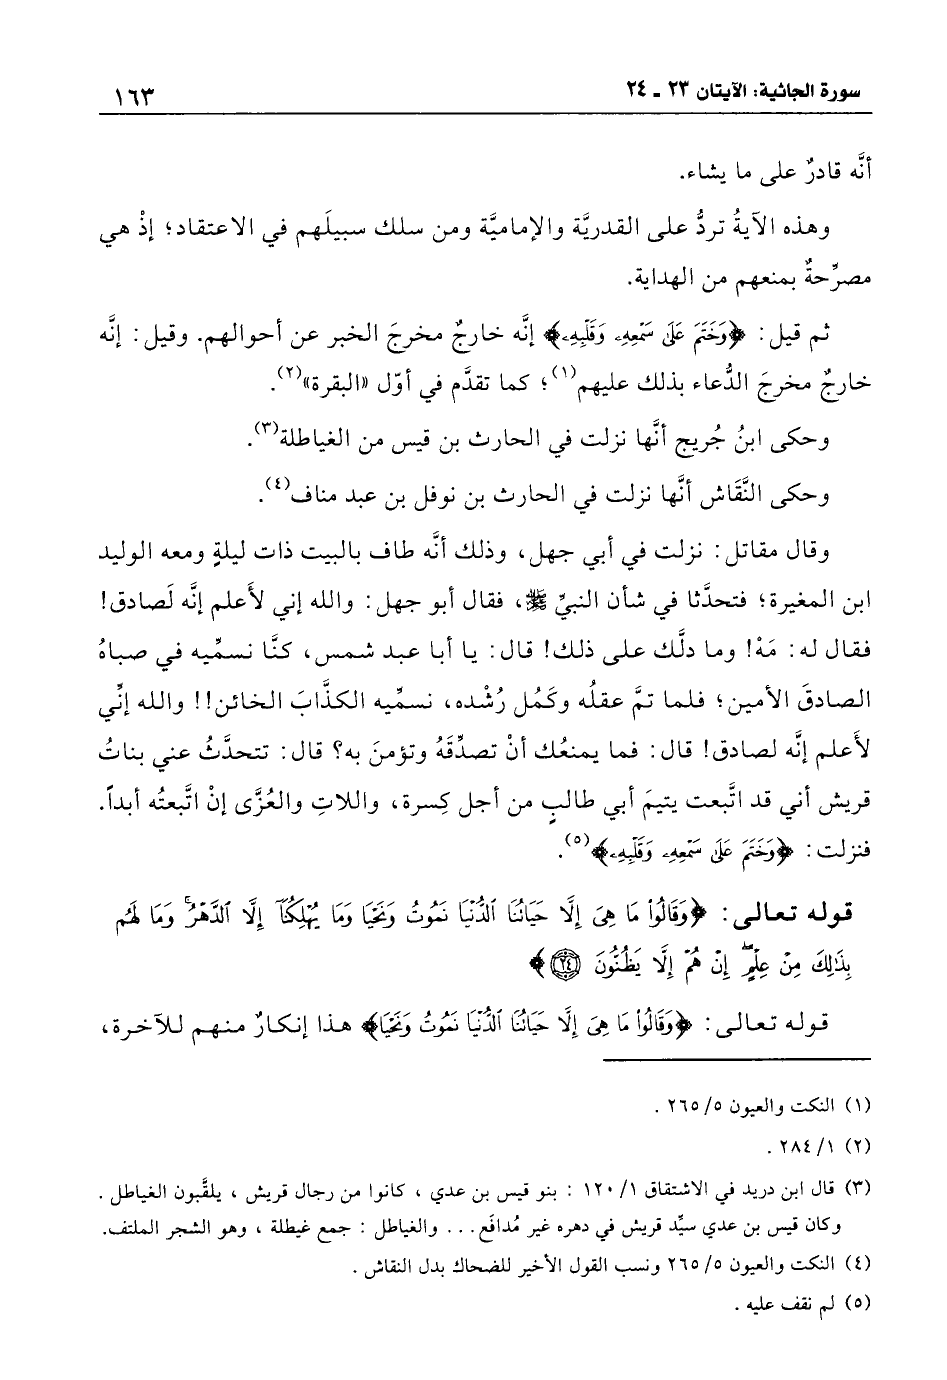 سورة الجاثية: الآيتان ٢٣ - ٢٤
١٦٣
أنَّه قادرٌ على ما يشاء.
وهذه الآيةُ تردُّ على القدريَّة والإماميَّة ومن سلك سبيلَهم في الاعتقاد؛ إذْ هي
مصرِّحةٌ بمنعهم من الهداية.
ثم قيل: ﴿وَخَتَمَ عَلَىٰ سَمْعِهِۦ وَقَلْبِهِۦ﴾ إنَّه خارجٌ مخرجَ الخبر عن أحوالهم. وقيل: إنَّه
خارجٌ مخرجَ الدُّعاء بذلك عليهم(١)؛ كما تقدَّم في أوّل «البقرة»(٢).
وحكى ابنُ جُريج أنَّها نزلت في الحارث بن قيس من الغياطلة(٣).
وحكى النَّقَاش أنَّها نزلت في الحارث بن نوفل بن عبد مناف(٤).
وقال مقاتل: نزلت في أبي جهل، وذلك أنَّه طاف بالبيت ذات ليلةٍ ومعه الوليد
ابن المغيرة؛ فتحدَّثا في شأن النبيِّ ﷺ، فقال أبو جهل: والله إني لأعلم إنَّه لَصادق!
فقال له: مَهْ! وما دلَّك على ذلك! قال: يا أبا عبد شمس، كنَّا نسمِّيه في صباهُ
الصادقَ الأمين؛ فلما تمَّ عقلُه وكَمُل رُشْده، نسمِّيه الكذَّابَ الخائن!! والله إنِّي
لأَعلم إنَّه لصادق! قال: فما يمنعُك أنْ تصدِّقَهُ وتؤمنَ به؟ قال: تتحدَّثُ عني بناتُ
قريش أني قد اتَّبعت يتيمَ أبي طالبٍ من أجل كِسرة، واللاتِ والعُزَّى إنْ اتَّبعتُه أبداً.
فنزلت: ﴿وَخَتَمَ عَلَىٰ سَمْعِهِۦ وَقَلْبِهِۦ﴾(٥).
قوله تعالى: ﴿وَقَالُوا۟ مَا هِىَ إِلَّا حَيَاتُنَا ٱلدُّنْيَا نَمُوتُ وَنَحْيَا وَمَا يُهْلِكُنَآ إِلَّا ٱلدَّهْرُ ۚ وَمَا لَهُم
بِذَٰلِكَ مِنْ عِلْمٍ ۖ إِنْ هُمْ إِلَّا يَظُنُّونَ ٢٤﴾
قوله تعالى: ﴿وَقَالُوا۟ مَا هِىَ إِلَّا حَيَاتُنَا ٱلدُّنْيَا نَمُوتُ وَنَحْيَا﴾ هذا إنكارٌ منهم للآخرة،
(١) النكت والعيون ٥/ ٢٦٥ .
(٢) ١/ ٢٨٤ .
(٣) قال ابن دريد في الاشتقاق ١/ ١٢٠ : بنو قيس بن عدي ، كانوا من رجال قريش ، يلقَّبون الغياطل .
وكان قيس بن عدي سيِّد قريش في دهره غير مُدافَع... والغياطل : جمع غيطلة ، وهو الشجر الملتف.
(٤) النكت والعيون ٥/ ٢٦٥ ونسب القول الأخير للضحاك بدل النقاش .
(٥) لم نقف عليه .